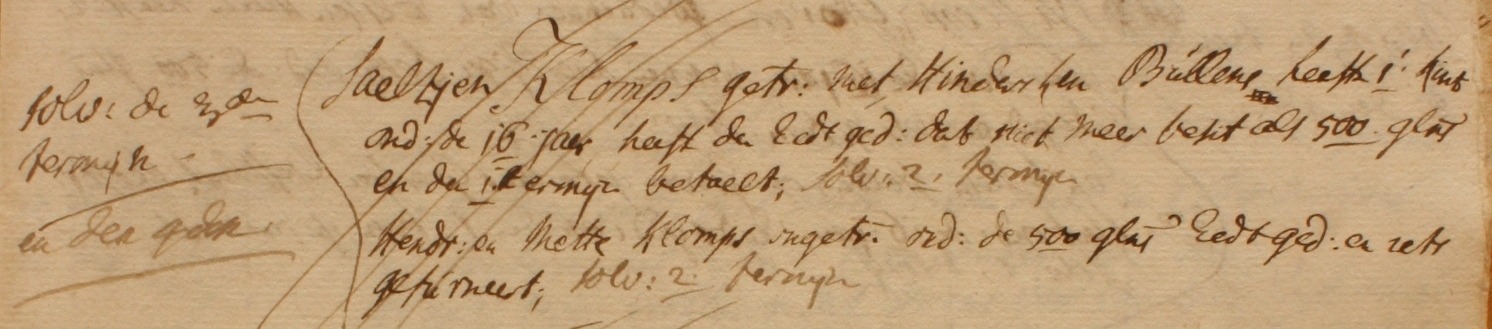 solv: de 3de
termijn
en den 4den
Saeltjen Klomps getr: met Hinderken Büllens heeft 1 kint
ond: de 16 jaer heeft den Eedt ged: dat niet meer besit als 500 glns
en den 1 termijn betaelt; solv: 2. termijn
Hendr: en Mette Klomps ongetr: ond: de 500 glns Eedt ged: en iets
gefurneert; solv: 2 termijn